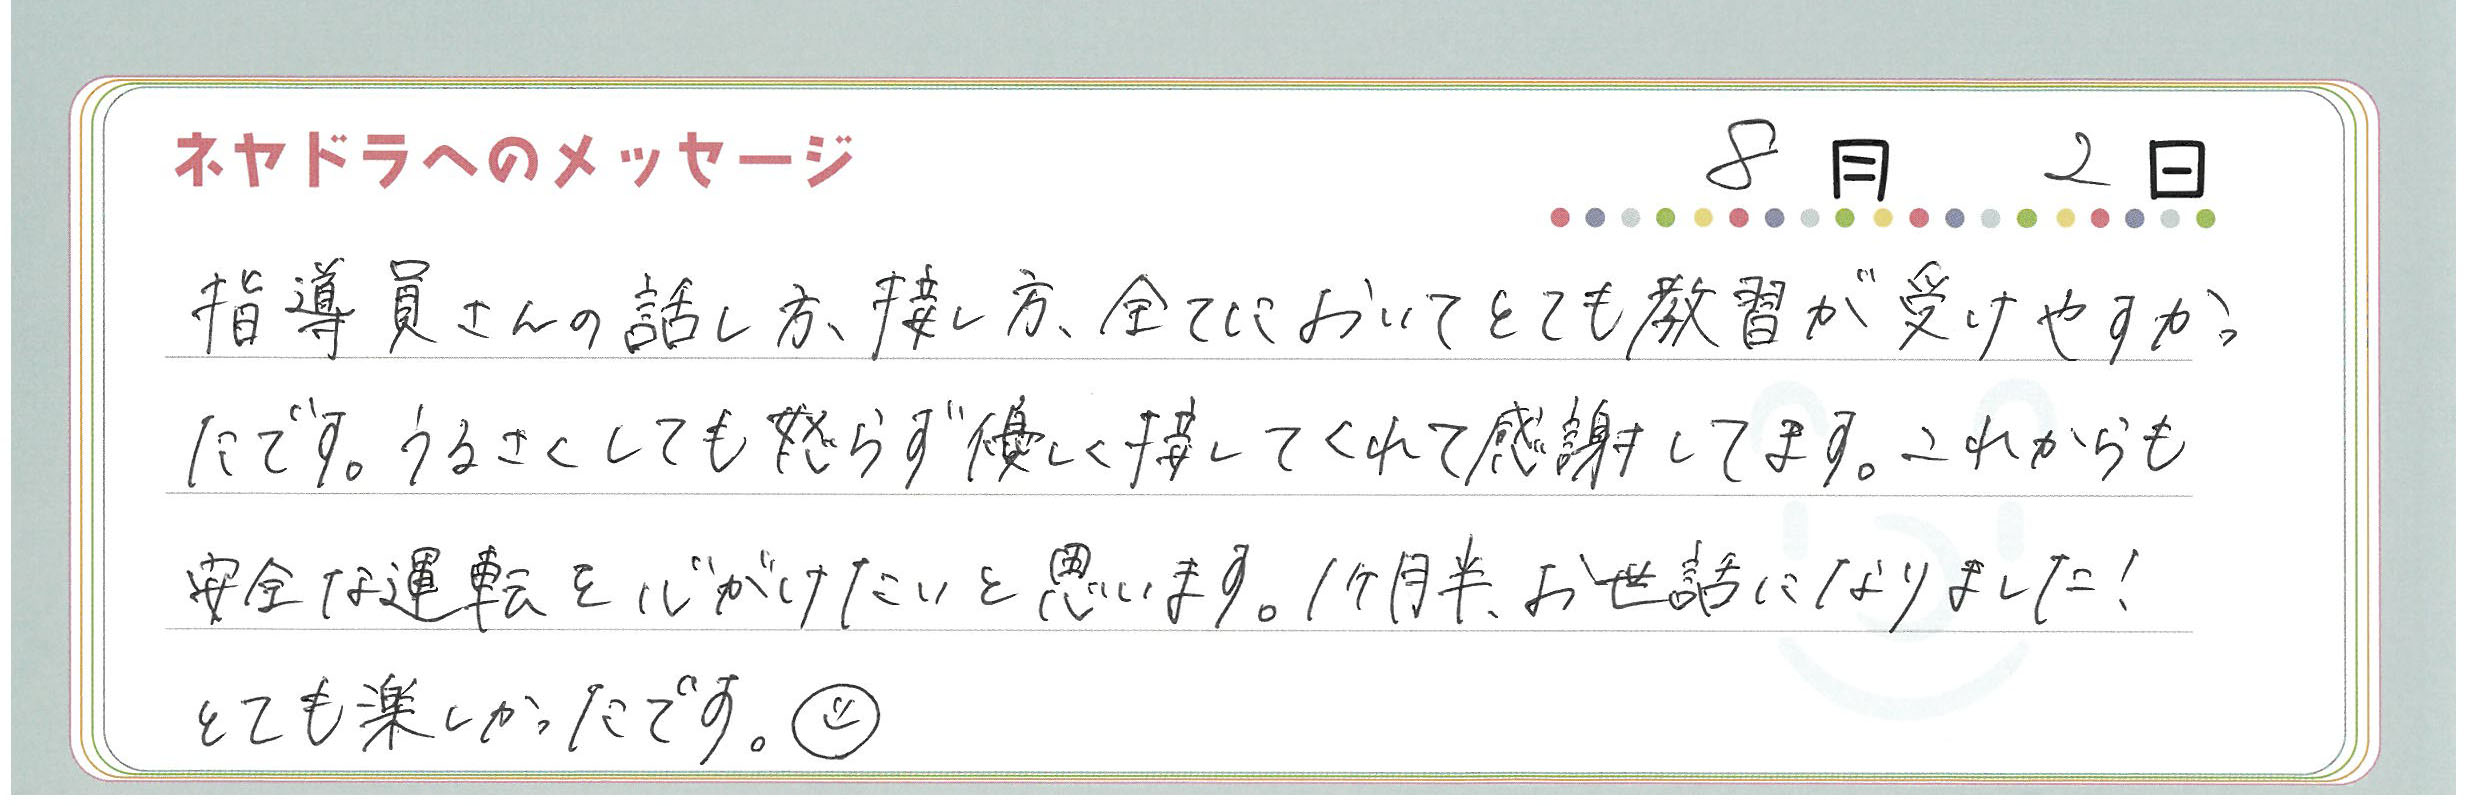 ネヤドラへのメッセージ
8月 2日
指導員さんの話し方、接し方、全てにおいてとても教習が受けやすかっ
たです。うるさくしても怒らず優しく接してくれて感謝してます。これからも
安全な運転を心がけたいと思います。1ヶ月半、お世話になりました!
とても楽しかったです。